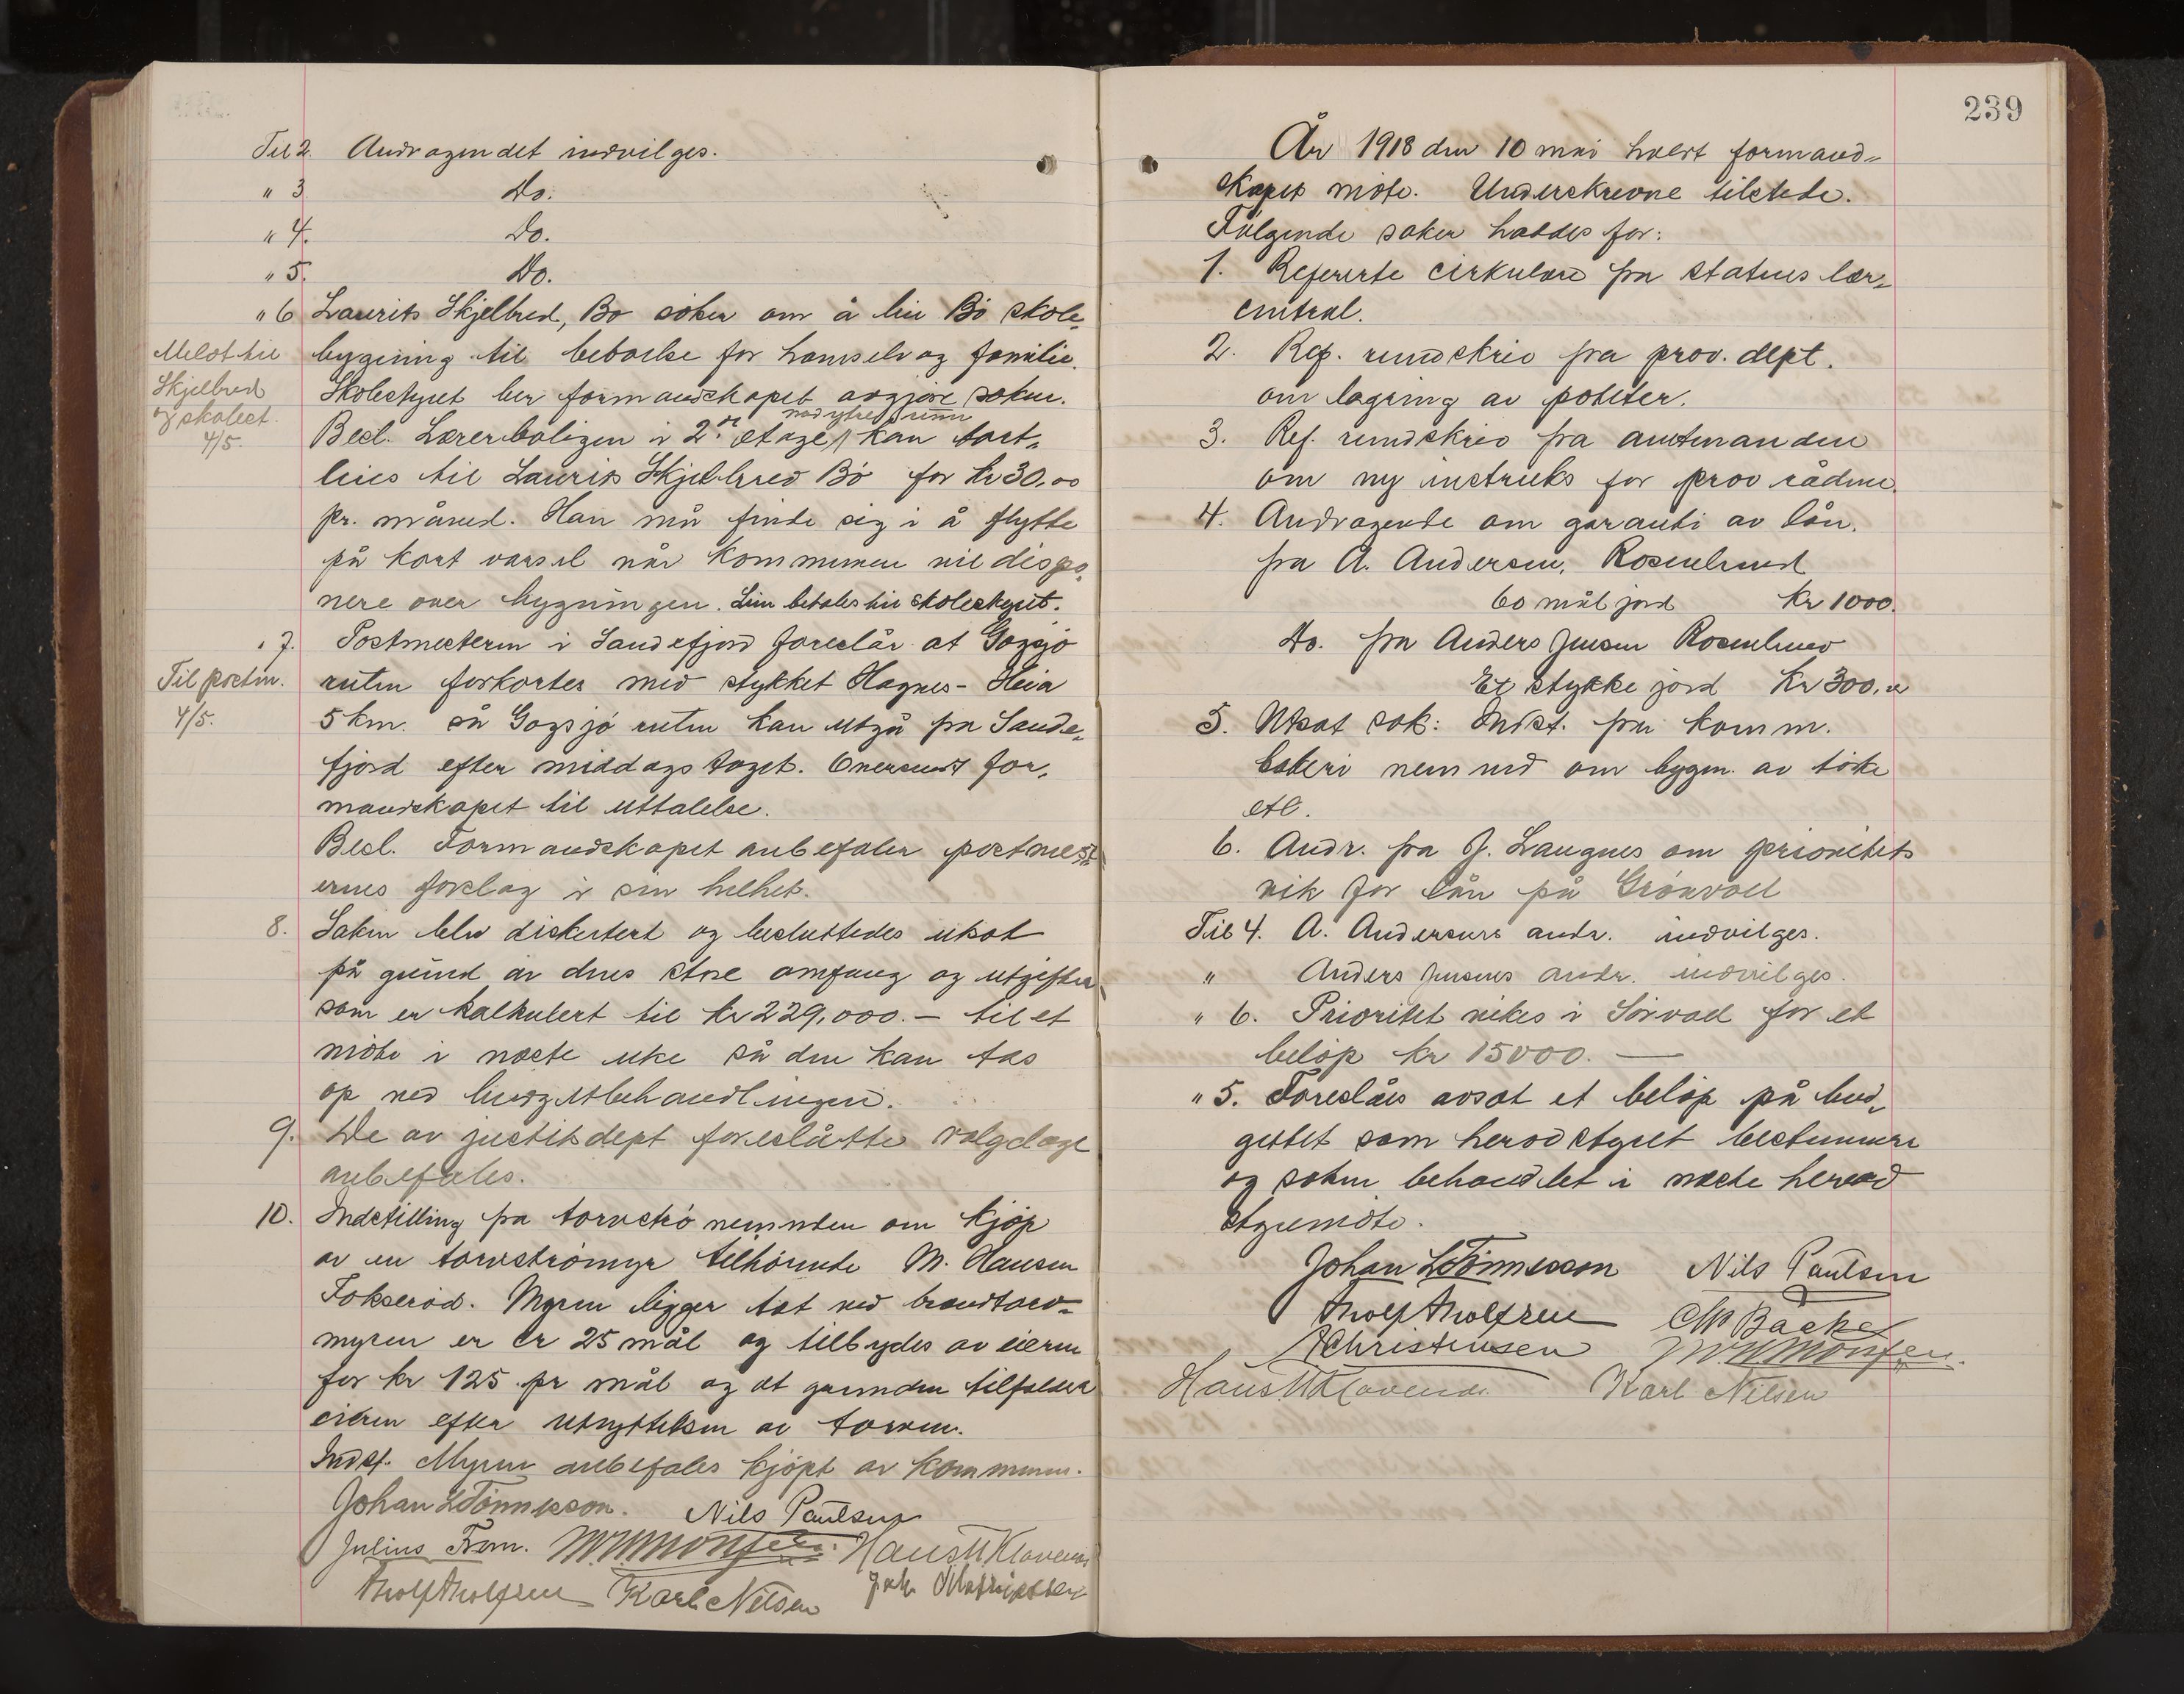 Til 2. Andragendet indvilges.
" 3 Do.
" 4. Do.
" 5. Do.
" 6 Laurits Skjelbred, Bø søker om å leie Bø skole-
bygning til beboelse for ham selv og familie.
Skolestyret ber formandskapet avgjøre saken.
nødvendige rum
Besl. Lærerboligen i 2. etage kan bort-
leies til Laurits Skjelbred Bø for kr 30.00
pr. måned. Han må finde sig i å flytte
på kort varsel når kommunen vil dispo-
nere over bygningen. Leien betales til skolestyret.
Meldt til
Skjelbred
og skolest.
4/5.
" 7. Postmesteren i Sandefjord foreslår at Gogsjø
ruten forkortes med stykket Hagnes - Heia
5 km. så Gogsjø ruten kan utgå fra Sande-
fjord efter middags toget. Oversendt for-
mandskapet til uttalelse.
Besl. Formandskapet anbefaler postmest-
erens forslag i sin helhet.
Til postm.
4/5.
8. Saken blev diskutert og besluttedes utsat
på grund av dens store omfang og utgifter
som er kalkulert til kr 229,000.- til et
møte i næste uke så den kan tas
op ved budgetbehandlingen.
9. De av justitsdept foreslåtte valgdage
anbefales.
10. Indstilling fra torvstrø nemnden om kjøp
av en torvstrømyr tilhørende M. Hansen
Fokserød. Myren ligger tæt ved brendtorv-
myren er cr 25 mål og tilbydes av eieren
for kr 125 pr mål og at grunden tilfalder
eieren efter utnyttelsen av torven.
Indst. Myren anbefales kjøpt av kommunen.
Johan L Tønnesson. Nils Paulsen
Julius Frem. M. Monsen. Hans M Klavenes
Tholf Tholfsen Karl Nilsen
239
År 1918 den 10 mai holdt formand-
skapet møte. Underskrevne tilstede.
Følgende saker haddes for:
1. Refererte cirkulære fra statens lær-
central.
2. Ref. rundskriv fra prov. dept.
om lagring av poteter.
3. Ref. rundskriv fra amtmanden
om ny instruks for prov rådene.
4. Andragende om garanti av lån.
fra A. Andersen, Rosenlund
60 mål jord Kr 1000.
Do. fra Anders Jensen Rosenlund
Et stykke jord Kr 300.00
5. Utsat sak: Indst. fra komm.
bakeri nemnd om bygn. av
etc.
6. Andr. fra J. Laugnes om prioritets
vik for lån på Grønvold
Til 4. A. Andersens andr. indvilges.
" Anders Jensens andr. indvilges.
" 6. Prioritet vikes i for et
beløp kr 15000. —
" 5. Foreslåes avsat et beløp på bud-
gettet som herredstyret bestemmer
og saken behandlet i næste herred
styremøte.
Johan L Tønnesson Nils Paulsen
Tholf Tholfsen Chr Backe
A Christensen M. Monsen.
Hans M Klavenes Karl Nilsen